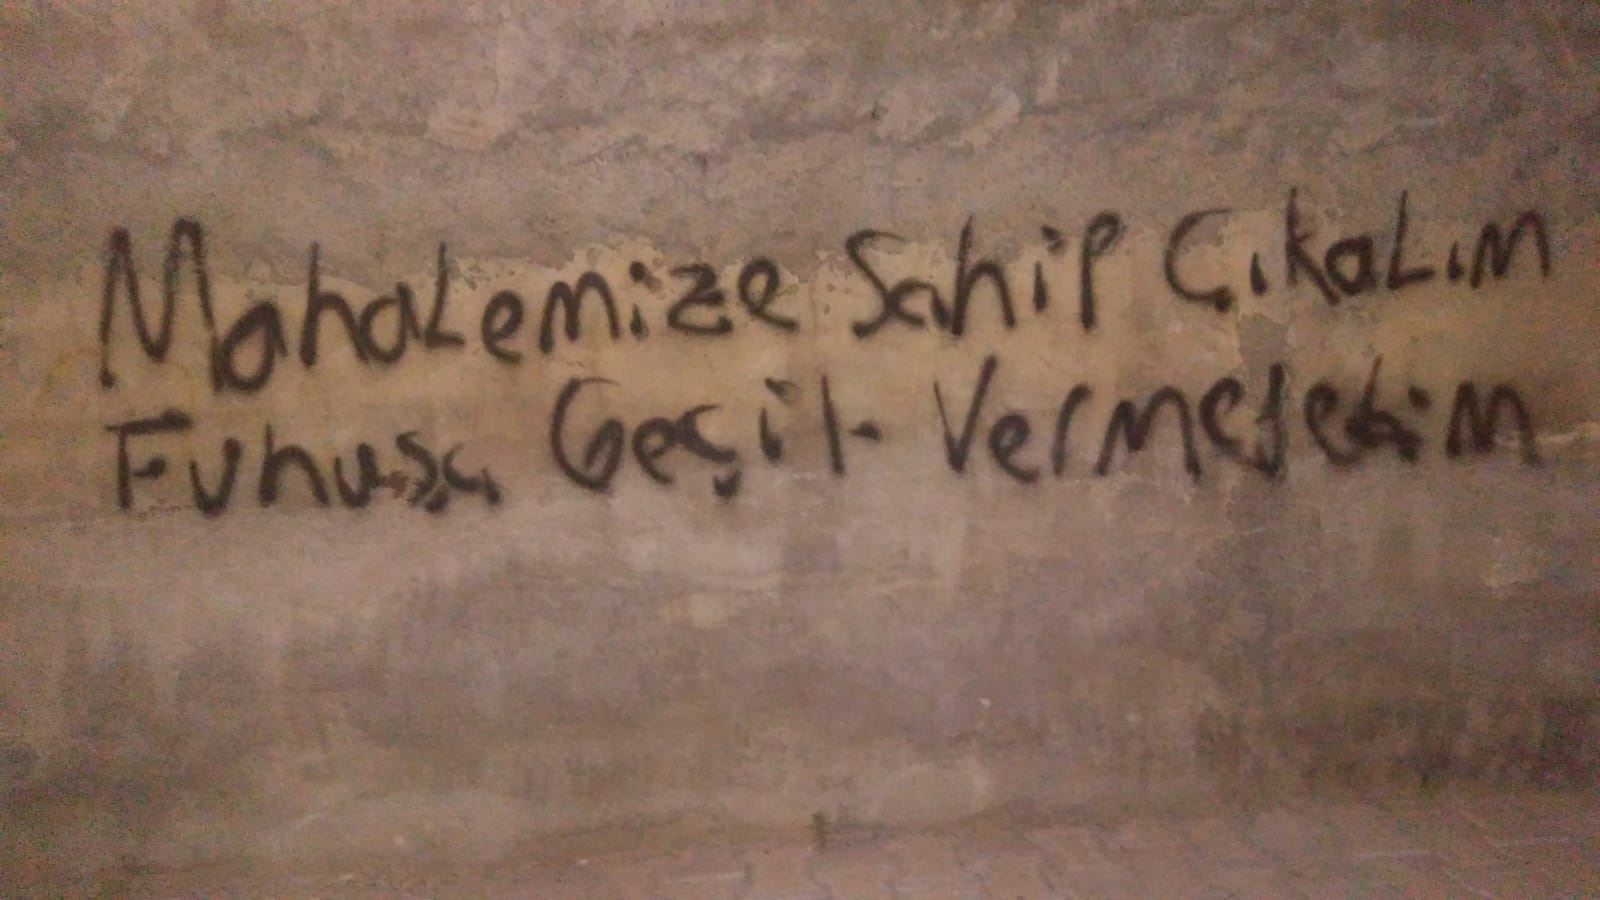 Mahalemize Sahip Çıkalım
Fuhuşa Geçit Vermeyelim